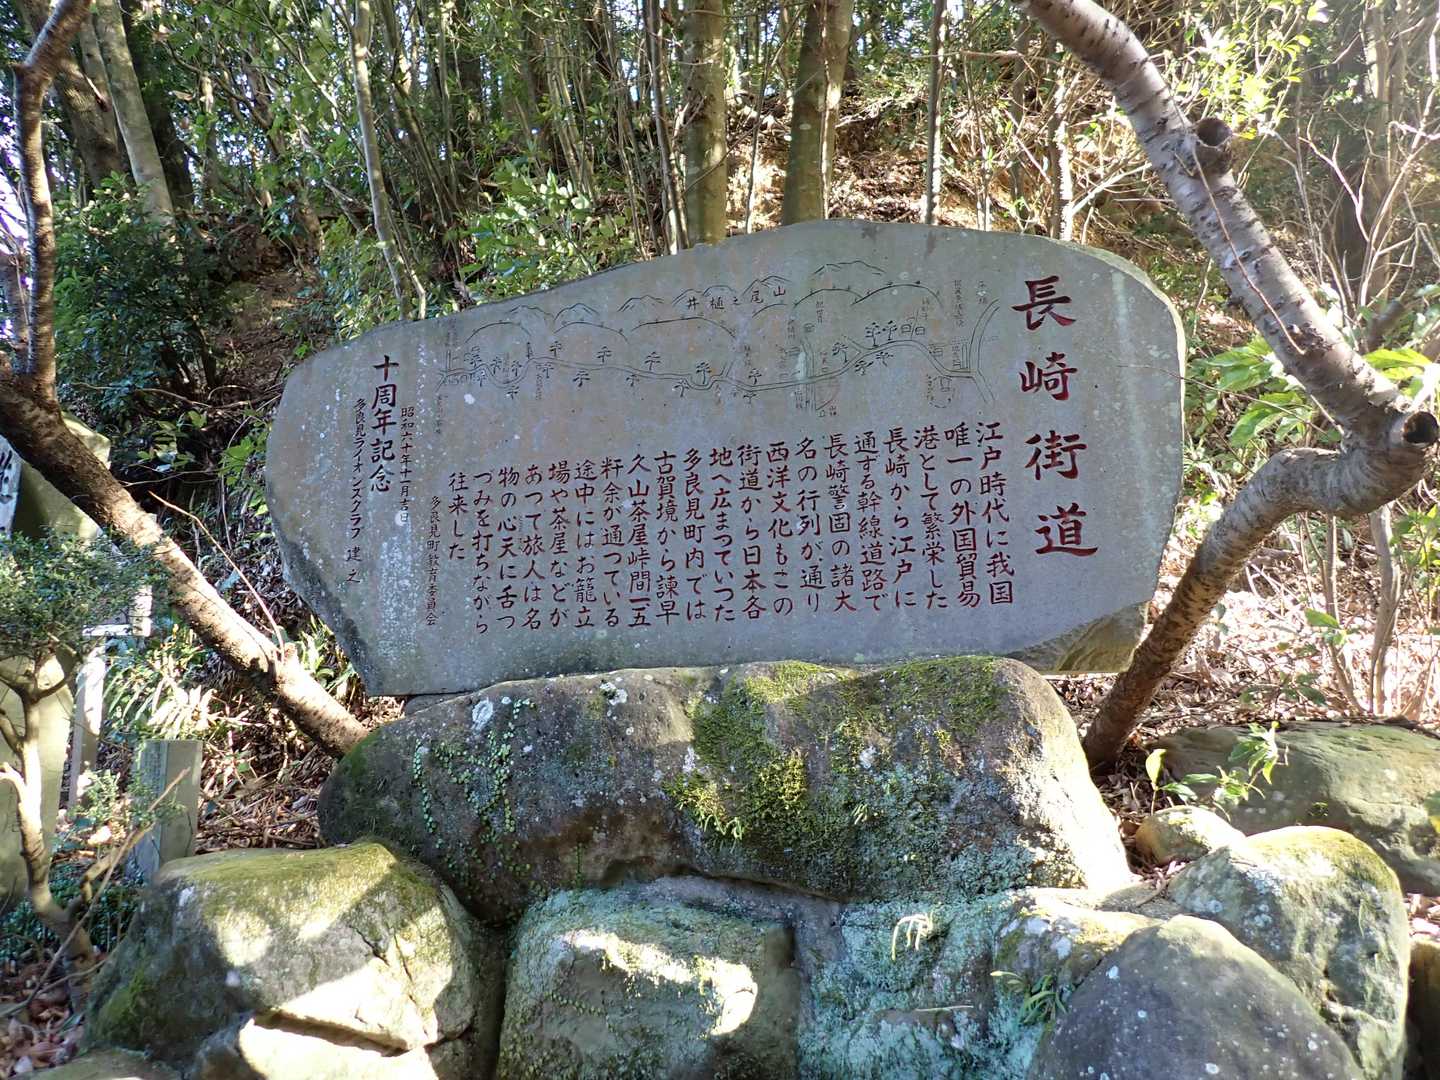 長崎街道
江戸時代に我国
唯一の外国貿易
港として繁栄した
長崎から江戸に
通ずる幹線道路で
長崎警固の諸大
名の行列が通り
西洋文化もこの
街道から日本各
地へ広まっていった
多良見町内では
古賀境から諫早
久山茶屋峠間一五
粁余が通っている
途中にはお籠立
場や茶屋などが
あって旅人は名
物の心天に舌つ
づみを打ちながら
往来した
多良見町教育委員会
昭和六十年十一月吉日
十周年記念
多良見ライオンズクラブ 建之
井樋之尾山